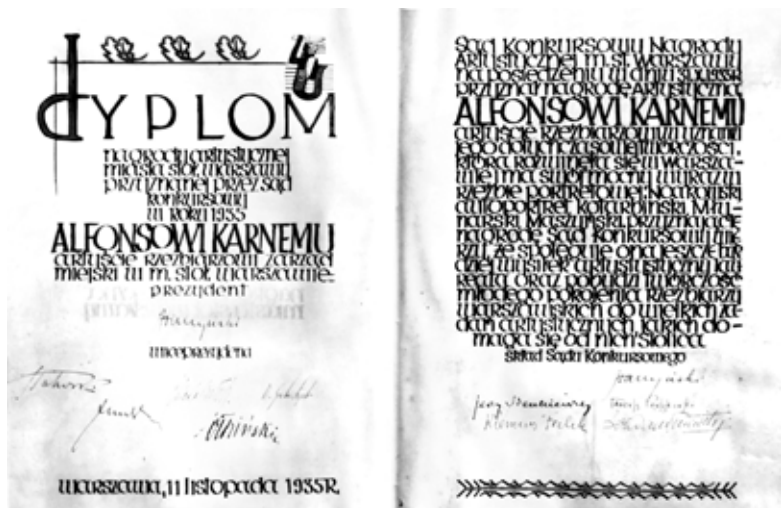 DYPLOM
nagrody artystycznej
miasta stoł. warszawy
przyznanej przez sąd
konkursowy
w roku 1935
ALFONSOWI KARNEMU
artyście rzeźbiarzowi zarząd
miejski w m. stoł. warszawie-
prezydent
wiceprezydenci
warszawa, 11 listopada 1935R.
Sąd Konkursowy Nagrody
Artystycznej m. st. Warszawy
na posiedzeniu w dniu
przyznał nagrodę Artystyczną
ALFONSOWI KARNEMU
artyście rzeźbiarzowi w uznaniu
jego dotychczasowej twórczości,
która rozwinęła się w warsza-
wie i ma swój mocny wyraz w
rzeźbie portretowej: Noakowski
autoportret, Kotarbiński, Młu-
narski, Maszyński. przyznając
nagrodę Sąd Konkursowy wie-
rzy, że spotęguje ona jeszcze bar
dziej wysiłek artystyczny lau
reata oraz pobudzi twórczość
młodego pokolenia rzeźbiarzy
warszawskich do wielkich za-
dań artystycznych jakich do-
maga się od nich stolica
skład Sądu Konkursowego